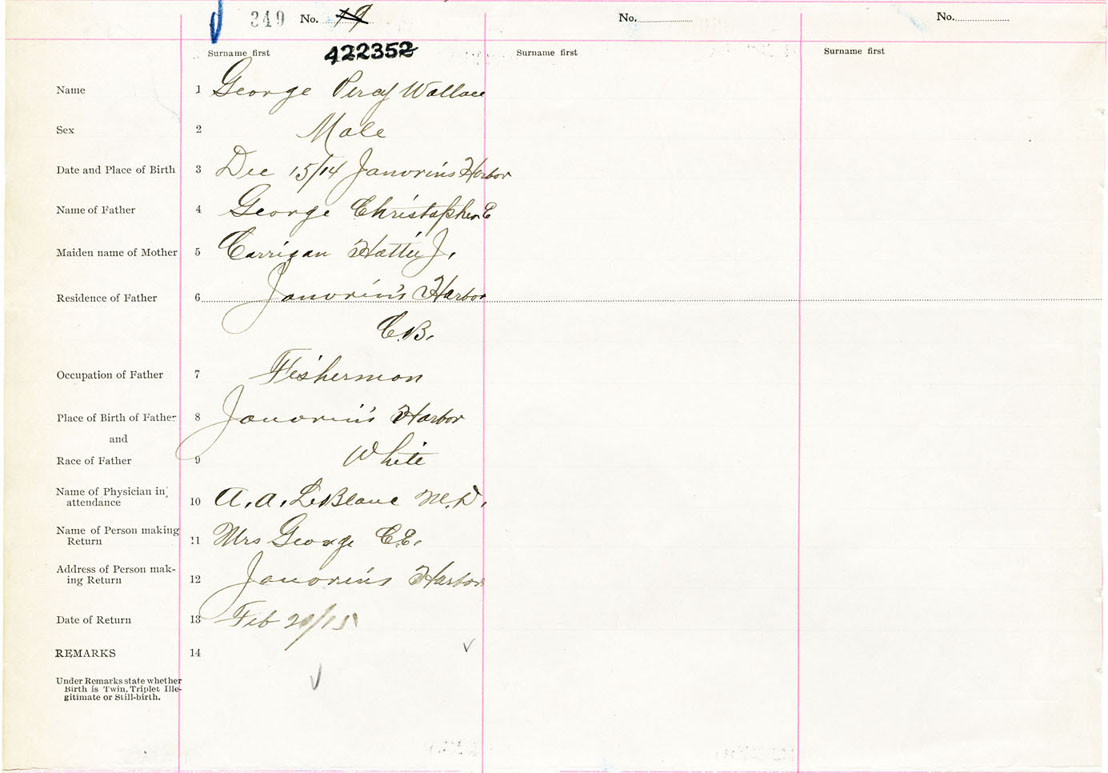 349 No. 19 No. No.
Surname first 422352 Surname first Surname first
Name 1 George Percy Wallace
Sex 2 Male
Date and Place of Birth 3 Dec 15/14 Janvrin's Harbor
Name of Father 4 George Christopher E
Maiden name of Mother 5 Carrigan Hattie J.
Residence of Father 6 Janvrin's Harbor
C.B.
Occupation of Father 7 Fisherman
Place of Birth of Father 8 Janvrin's Harbor
and
Race of Father 9 White
Name of Physician in
attendance 10 A. A. LeBlanc M.D.
Name of Person making
Return 11 Mrs George C.E.
Address of Person mak-
ing Return 12 Janvrins Harbor
Date of Return 13 Feb /15
REMARKS 14
Under Remarks state whether
Birth is Twin, Triplet Ille-
gitimate or Still-birth.